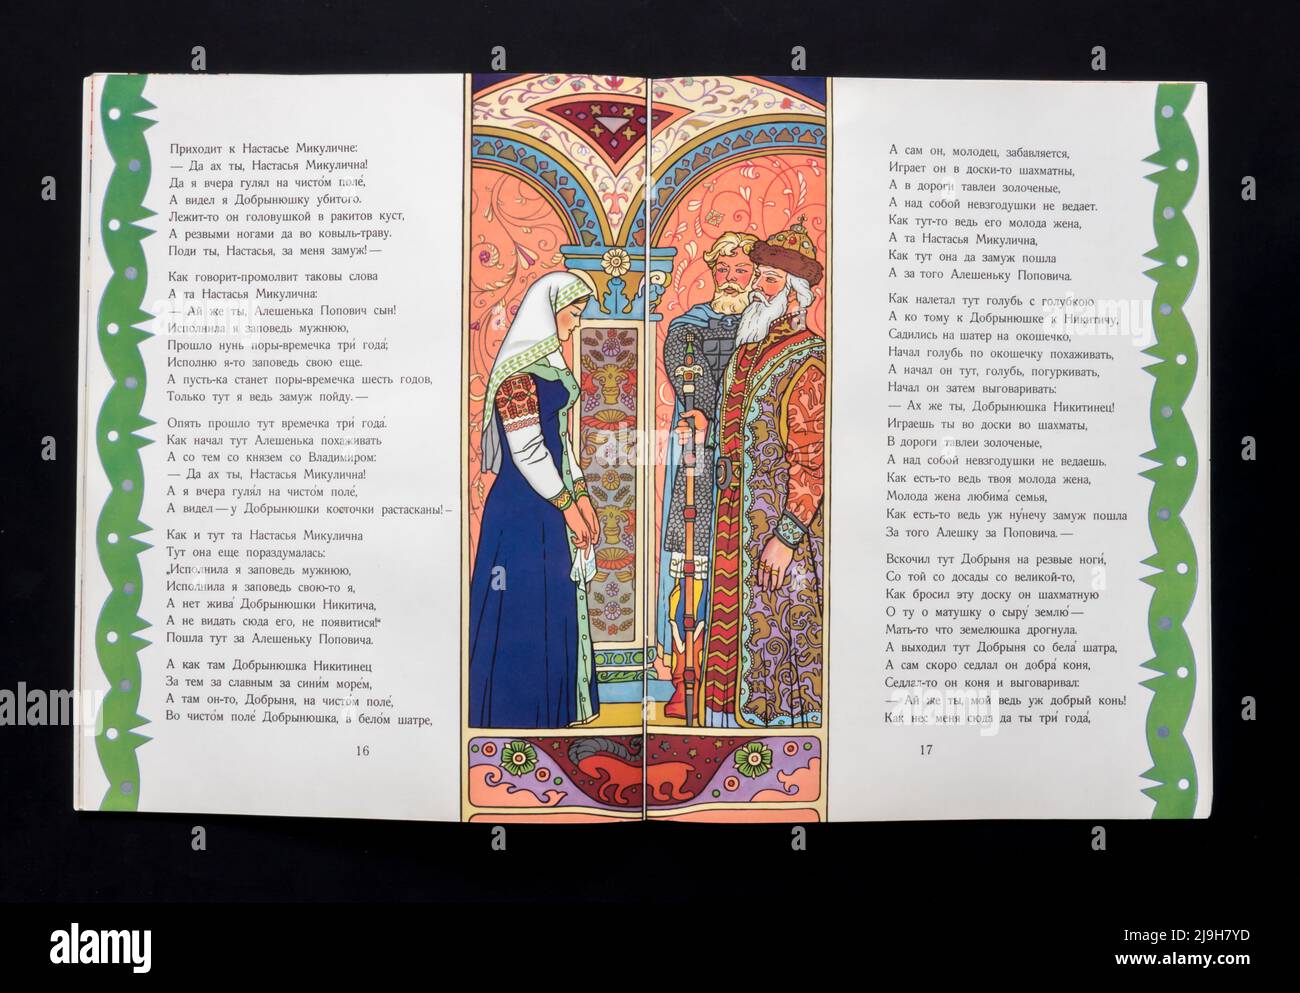 Приходит к Настасье Микуличне:
— Да ах ты, Настасья Микулична!
Да я вчера гулял на чисто́м поле́,
А видел я Добрынюшку убитого.
Лежит-то он головушкой в ракитов куст,
А резвыми ногами да во ковыль-траву.
Поди ты, Настасья, за меня замуж! —
Как говорит-промолвит таковы слова
А та Настасья Микулична:
— Ай же ты, Алешенька Попович сын!
Исполнила я заповедь мужнюю,
Прошло нунь поры-времечка три́ года́;
Исполню я-то заповедь свою еще.
А пусть-ка станет поры-времечка шесть годов,
Только тут я ведь замуж пойду. —
Опять прошло тут времечка три́ года́.
Как начал тут Алешенька похаживать
А со тем со князем со Владимиром:
— Да ах ты, Настасья Микулична!
А я вчера гулял на чисто́м поле́,
А видел — у Добрынюшки косточки растасканы! –
Как и тут та Настасья Микулична
Тут она еще пораздумалась:
„Исполнила я заповедь мужнюю,
Исполнила я заповедь свою-то я,
А нет жива́ Добрынюшки Никитича,
А не видать сюда его, не появитися!“
Пошла тут за Алешеньку Поповича.
А как там Добрынюшка Никитинец
За тем за славным за сини́м море́м,
А там он-то, Добрыня, на чисто́м поле́,
Во чисто́м поле́ Добрынюшка, в бело́м шатре,
16
А сам он, молодец, забавляется,
Играет он в доски-то шахматны,
А в дороги тавлеи золоченые,
А над собой невзгодушки не ведает.
Как тут-то ведь его молода жена,
А та Настасья Микулична,
Как тут она да замуж пошла
А за того Алешеньку Поповича.
Как налетал тут голубь с голубкою
А ко тому к Добрынюшке к Никитичу,
Садились на шатер на окошечко,
Начал голубь по окошечку похаживать,
А начал он тут, голубь, погуркивать,
Начал он затем выговаривать:
— Ах же ты, Добрынюшка Никитинец!
Играешь ты во доски во шахматы,
В дороги тавлеи золоченые,
А над собой невзгодушки не ведаешь.
Как есть-то ведь твоя молода жена,
Молода жена любима́ семья,
Как есть-то ведь уж ну́нечу замуж пошла
За того Алешку за Поповича. —
Вскочил тут Добрыня на резвые ноги́,
Со той со досады со великой-то,
Как бросил эту доску он шахматную
О ту о матушку о сыру́ землю́ —
Мать-то что земелюшка дрогнула.
А выходил тут Добрыня со бела́ шатра,
А сам скоро седлал он добра́ коня,
Седлал-то он коня и выговаривал:
— Ай же ты, мой ведь уж добрый конь!
Как нес меня сюда да ты три́ года́,
17
alamy
Image ID: J9H7YD
www.alamy.com